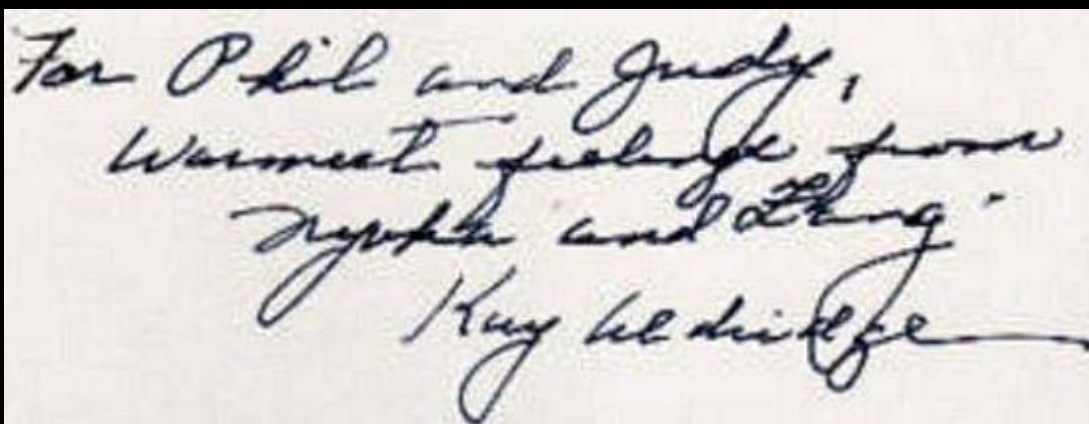 For Phil and Judy,
Warmest feelings from
Nyoka and Fang.
Kay Aldridge